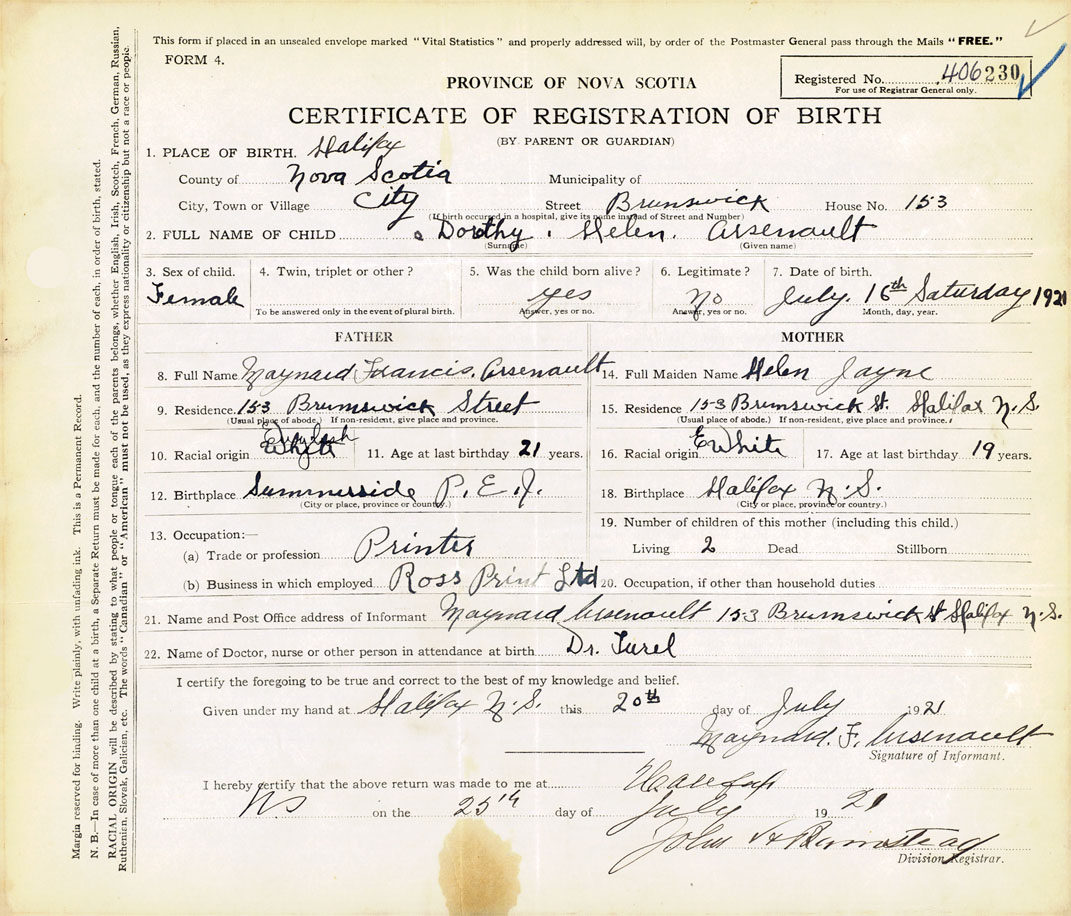 This form if placed in an unsealed envelope marked "Vital Statistics" and properly addressed will, by order of the Postmaster General pass through the Mails "FREE."
FORM 4.
Registered No. 406230
For use of Registrar General only.
PROVINCE OF NOVA SCOTIA
CERTIFICATE OF REGISTRATION OF BIRTH
(BY PARENT OR GUARDIAN)
1. PLACE OF BIRTH. Halifax
County of Nova Scotia Municipality of
City, Town or Village City Street Brunswick House No. 153
(If birth occurred in a hospital, give its name instead of Street and Number)
2. FULL NAME OF CHILD Dorothy Helen Arsenault
(Surname) (Given name)
3. Sex of child. 4. Twin, triplet or other? 5. Was the child born alive? 6. Legitimate? 7. Date of birth.
Female yes no July. 16th Saturday 1921
To be answered only in the event of plural birth. Answer, yes or no. Answer, yes or no. Month, day, year.
FATHER MOTHER
8. Full Name Maynard Francis. Arsenault 14. Full Maiden Name Helen Jayne
9. Residence. 153 Brunswick Street 15. Residence 153 Brunswick St. Halifax N.S.
(Usual place of abode.) If non-resident, give place and province. (Usual place of abode.) If non-resident, give place and province.
10. Racial origin English White 11. Age at last birthday 21 years. 16. Racial origin E White 17. Age at last birthday 19 years.
12. Birthplace Summerside P.E.I. 18. Birthplace Halifax N.S.
(City or place, province or country.) (City or place, province or country.)
13. Occupation:— 19. Number of children of this mother (including this child.)
(a) Trade or profession Printer Living 2 Dead Stillborn
(b) Business in which employed Ross Print Ltd 20. Occupation, if other than household duties
21. Name and Post Office address of Informant Maynard Arsenault 153 Brunswick St Halifax N.S.
22. Name of Doctor, nurse or other person in attendance at birth Dr.
I certify the foregoing to be true and correct to the best of my knowledge and belief.
Given under my hand at Halifax N.S. this 20th day of July 1921
Maynard. F. Arsenault
Signature of Informant.
I hereby certify that the above return was made to me at Halifax
NS on the 25th day of July 1921
John
Division Registrar.
Margin reserved for binding. Write plainly, with unfading ink. This is a Permanent Record.
N. B.—In case of more than one child at a birth, a Separate Return must be made for each, and the number of each, in order of birth, stated.
RACIAL ORIGIN will be described by stating to what people or tongue each of the parents belongs, whether English, Irish, Scotch, French, German, Russian,
Ruthenian, Slovak, Galician, etc. The words "Canadian" or "American" must not be used, as they express nationality or citizenship but not a race or people.